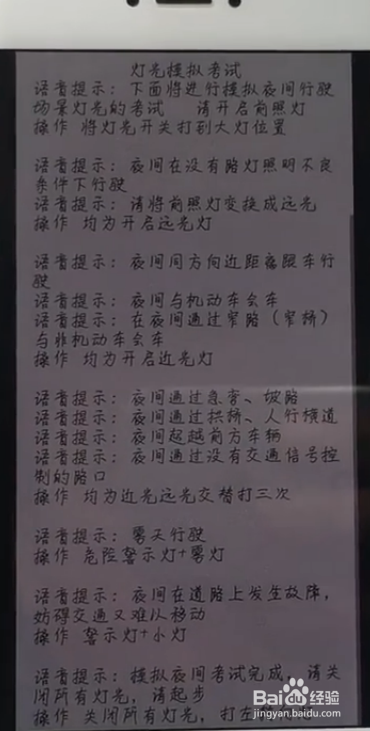 灯光模拟考试
语音提示：下面将进行模拟夜间行驶
场景灯光的考试 请开启前照灯
操作 将灯光开关打到大灯位置
语音提示：夜间在没有路灯照明不良
条件下行驶
语音提示：请将前照灯变换成远光
操作 均为开启远光灯
语音提示：夜间同方向近距离跟车行
驶
语音提示：夜间与机动车会车
语音提示：在夜间通过窄路（窄桥）
与非机动车会车
操作 均为开启近光灯
语音提示：夜间通过急弯、坡路
语音提示：夜间通过拱桥、人行横道
语音提示：夜间超越前方车辆
语音提示：夜间通过没有交通信号控
制的路口
操作 均为近光远光交替打三次
语音提示：雾天行驶
操作 危险警示灯+雾灯
语音提示：夜间在道路上发生故障，
妨碍交通又难以移动
操作 警示灯+小灯
语音提示：模拟夜间考试完成，请关
闭所有灯光，请起步
操作 关闭所有灯光，打左
Baidu经验
jingyan.baidu.com